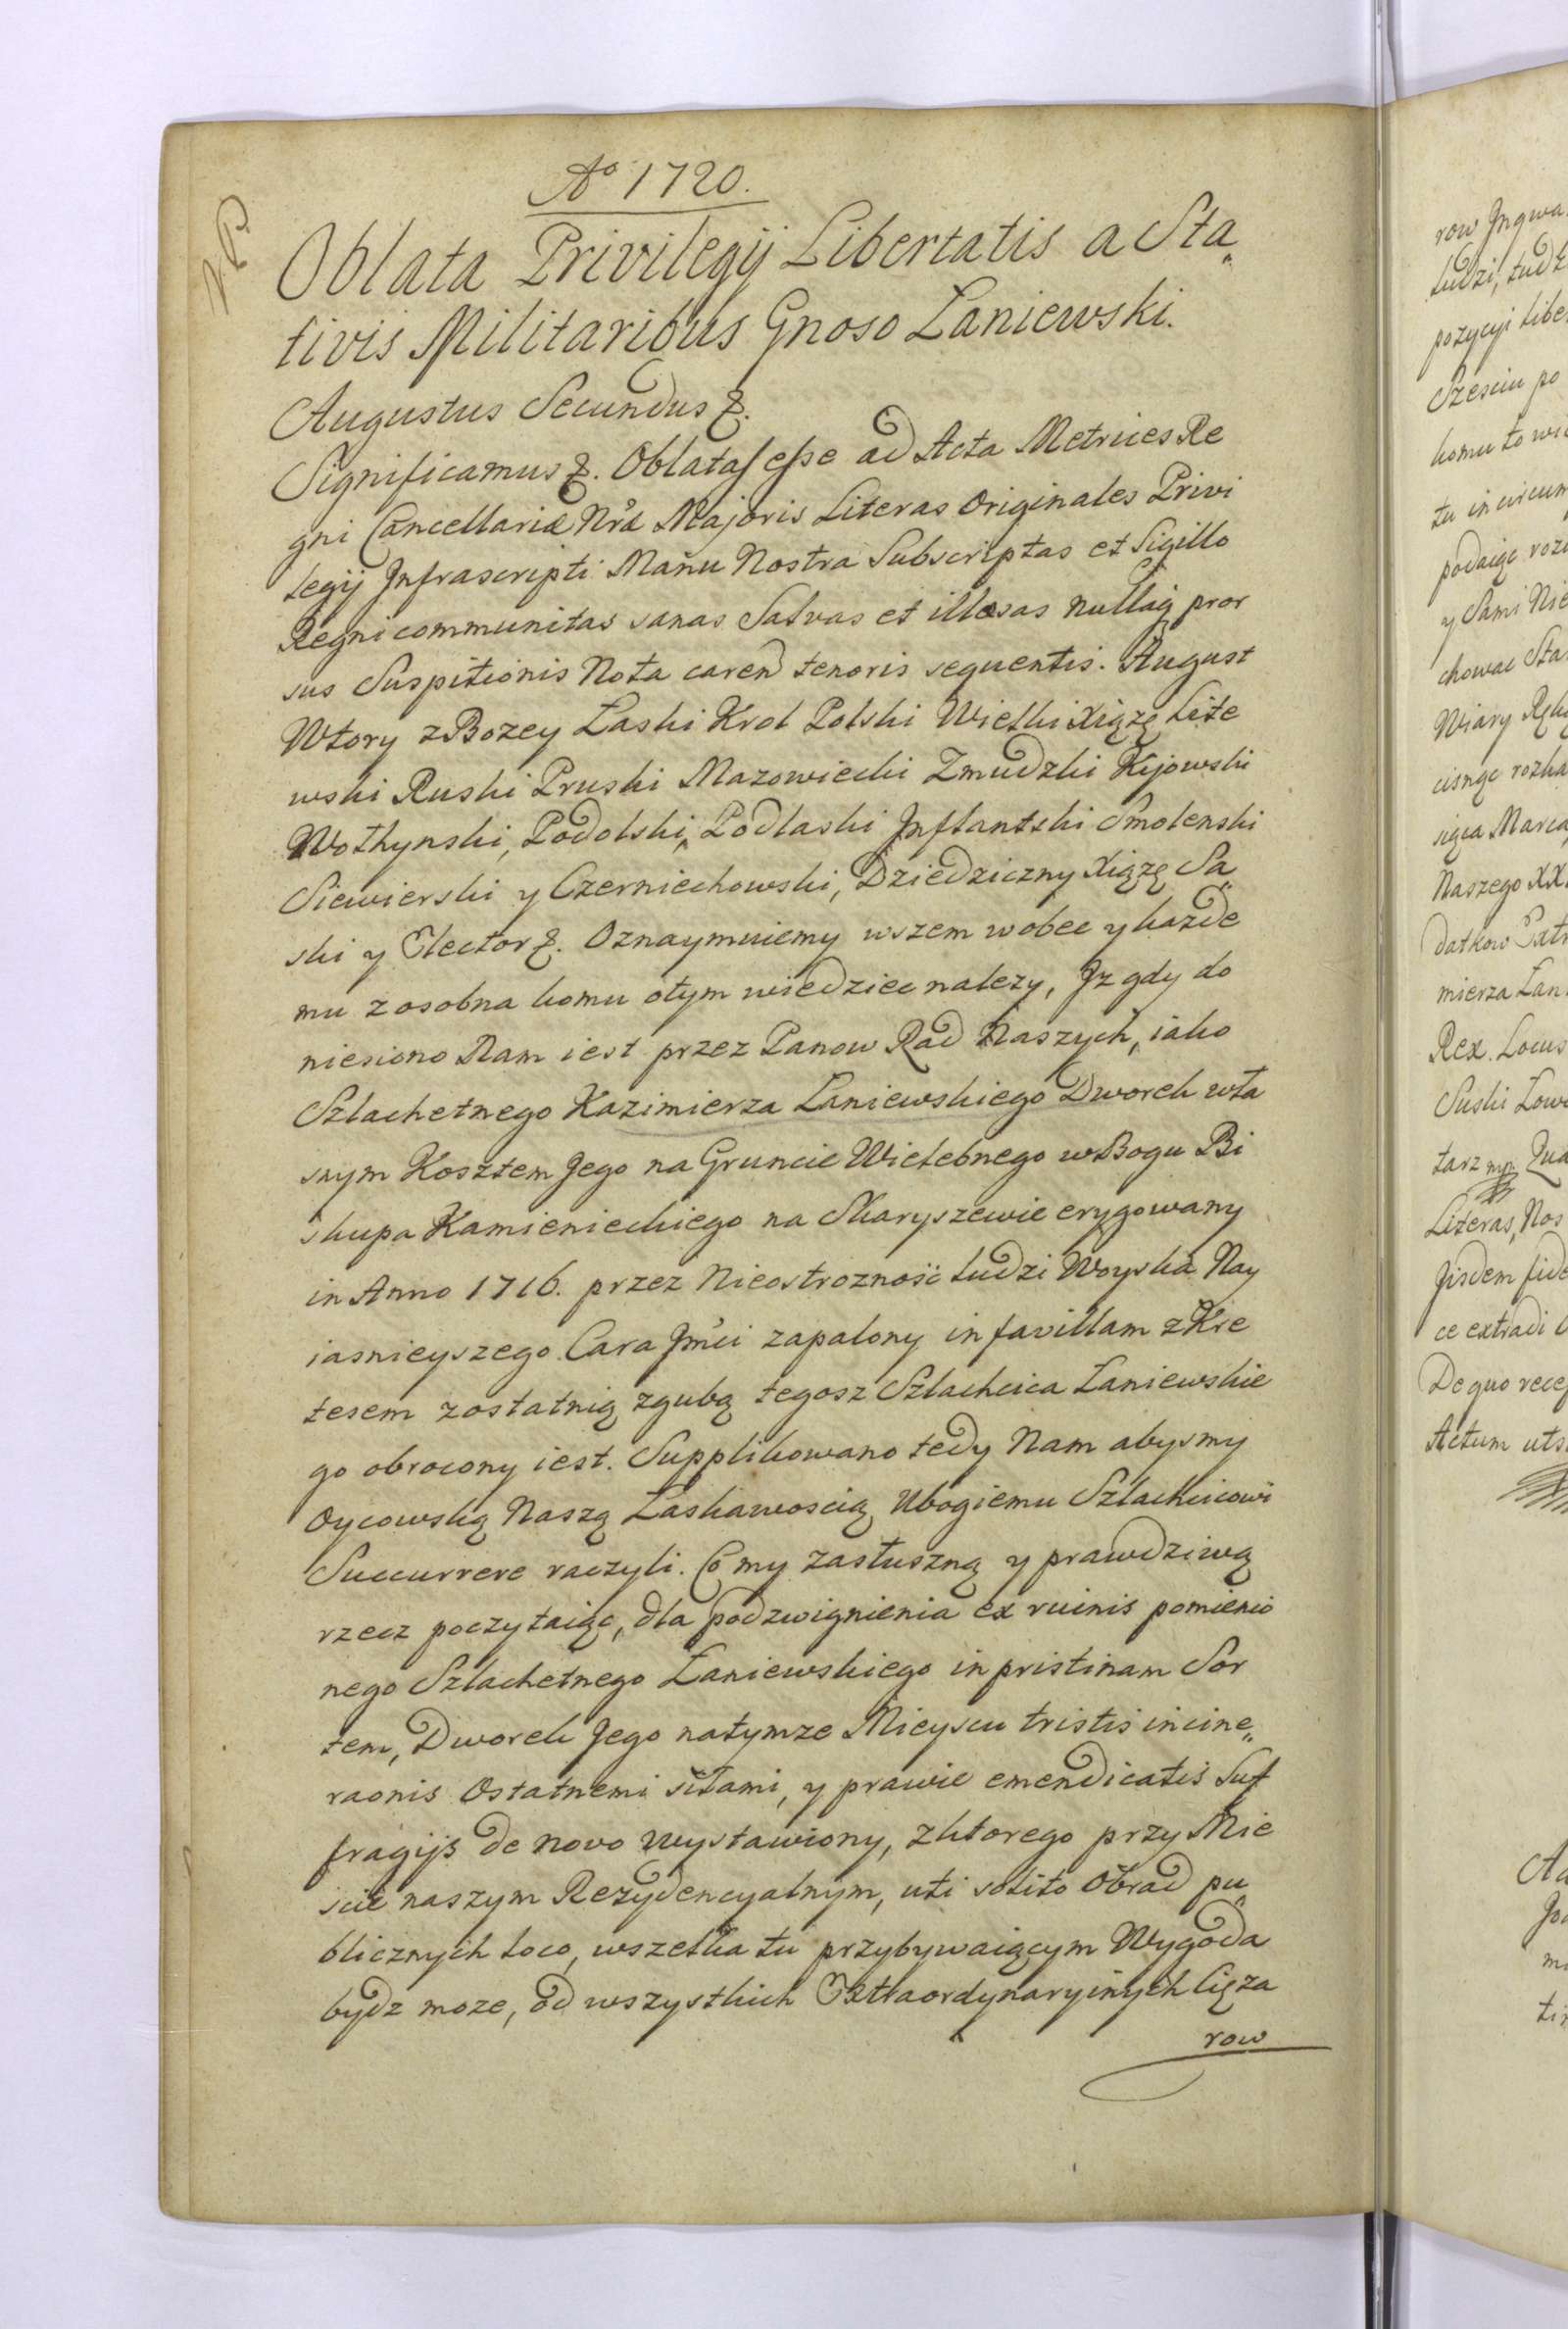 Aº 1720.
N. B.
Oblata Privilegij Libertatis a Sta„
tivis Militaribus Gnoso Łaniewski.
Augustus Secundus &.
Significamus &. Oblatas esse ad Acta Metrices Re
gni Cancellariæ Nræ Majoris Literas Originales Privi
legij Infrascripti Manu Nostra Subscriptas et Sigillo
Regni communitas sanas Salvas et illæsas nullaq pror
sus Suspitionis Nota caren tenoris sequentis. August
Wtory z Bozey Łaski Krol Polski Wielki Xiązę Lite
wski Ruski Pruski Mazowiecki Zmudzki Kijowski
Wołhynski, Podolski, Podlaski Inflantski Smolenski
Siewierski y Czerniechowski, Dziedziczny Xiązę Sa„
ski y Elector &. Oznaymuiemy wszem wobec y kazde
mu z osobna komu otym wiedziec nalezy, Iz gdy do
niesiono Nam iest przez Panow Rad Naszych, iako
Szlachetnego Kazimierza Łaniewskiego Dworek wła
snym Kosztem Jego na Gruncie Wielebnego w Bogu Bi
skupa Kamienieckiego na Skaryszewie erygowany
in Anno 1716. przez Nieostrozność ludzi Woyska Nay
iasnieyszego Cara Jmci zapalony in favillam z Kre
tesem z ostatnią zgubą tegosz Szlachcica Łaniewskie
go obrocony iest. Supplikowano tedy Nam abysmy
Oycowską Naszą Łaskawoscią Ubogiemu Szlachcicowi
Succurrere raczyli. Co my za słuszną y prawdziwą
rzecz poczytaiąc, dla podzwignienia ex ruinis pomienio
nego Szlachetnego Łaniewskiego in pristinam Sor
tem, Dworek Jego natymze Mieyscu tristis incine„
raonis Ostatnemi siłami, y prawie emendicatis Suf
fragijs de novo wystawiony, z ktorego przy Mie
scie naszym Rezydencyalnym, uti solito Obrad pu„
blicznych loco, wszelka tu przybywaiącym Wygoda
bydz moze, od wszystkich Extraordynaryinych Cięza
row
row Ingwa
ludzi, tudz
pozycyi libe
Szesciu po
komu to wie
tu in circum
podaiąc roz
y Sami Nie
chowac Sta
Wiary Ręk
cisnąc rozka
siąca Marca
Naszego XX
datkow Extr
mierza Łan
Rex. Locus
Suski Łow
tarz mp.
Literas, Nos
Iisdem fide
ce extradi
De quo rece
Actum uts